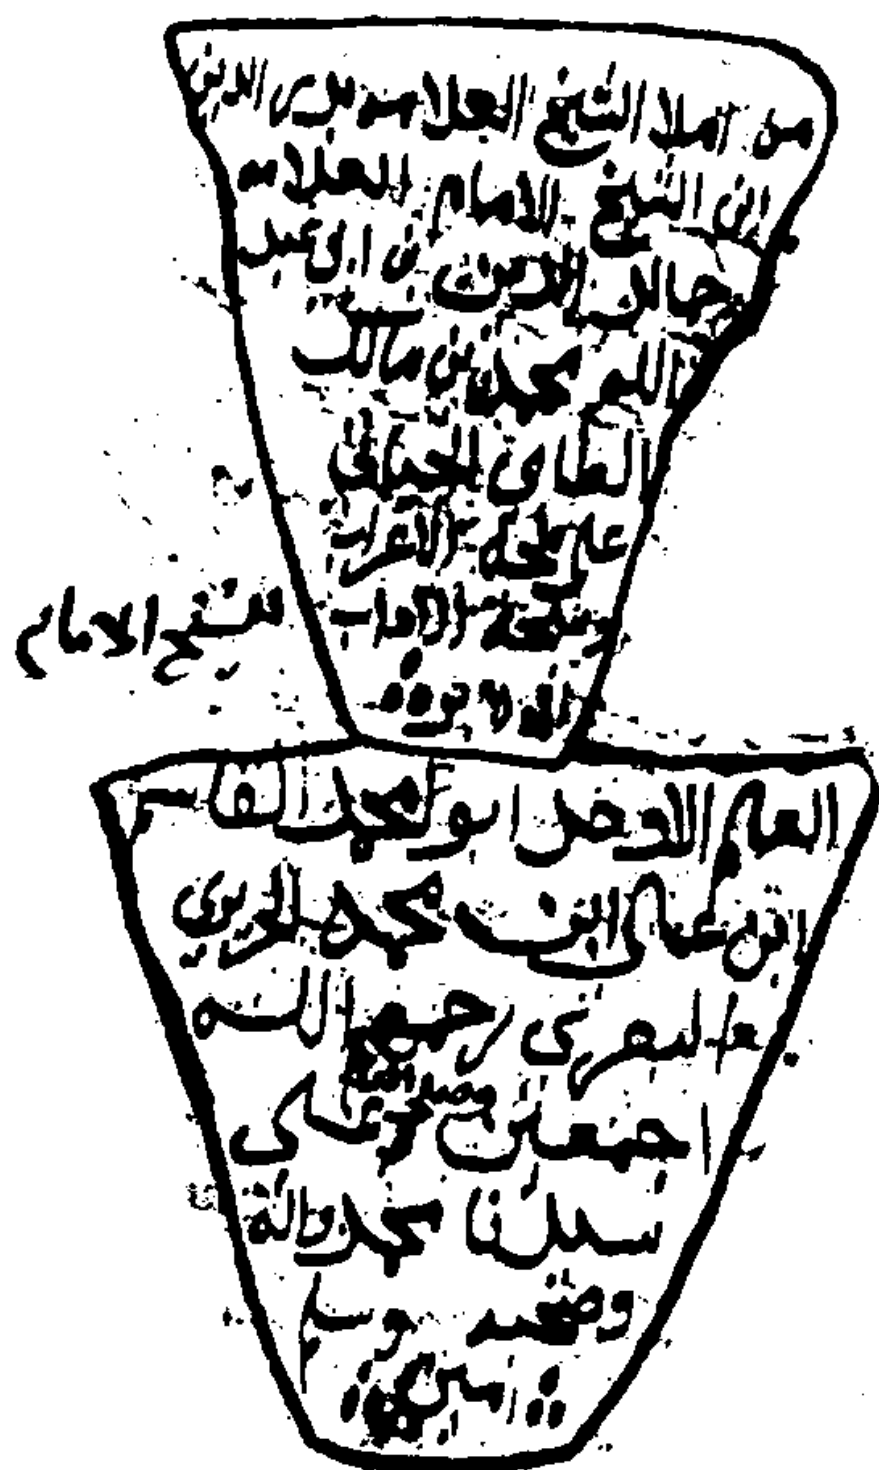 من املا الشيخ العلامه بدر الدين
ابن الشيخ الامام العلامه
جمال الدين بن ابي عبد
الله محمد بن مالك
الطاي الجياني
على ملحة الاعراب
وسبحة الاداب
للشيخ الامام
العالم الاوحد ابو محمد القاسم
ابن على ابن محمد الحريري
البصري رحمهم الله
اجمعين وصلى الله على
سيدنا محمد واله
وصحبه وسلم
امين